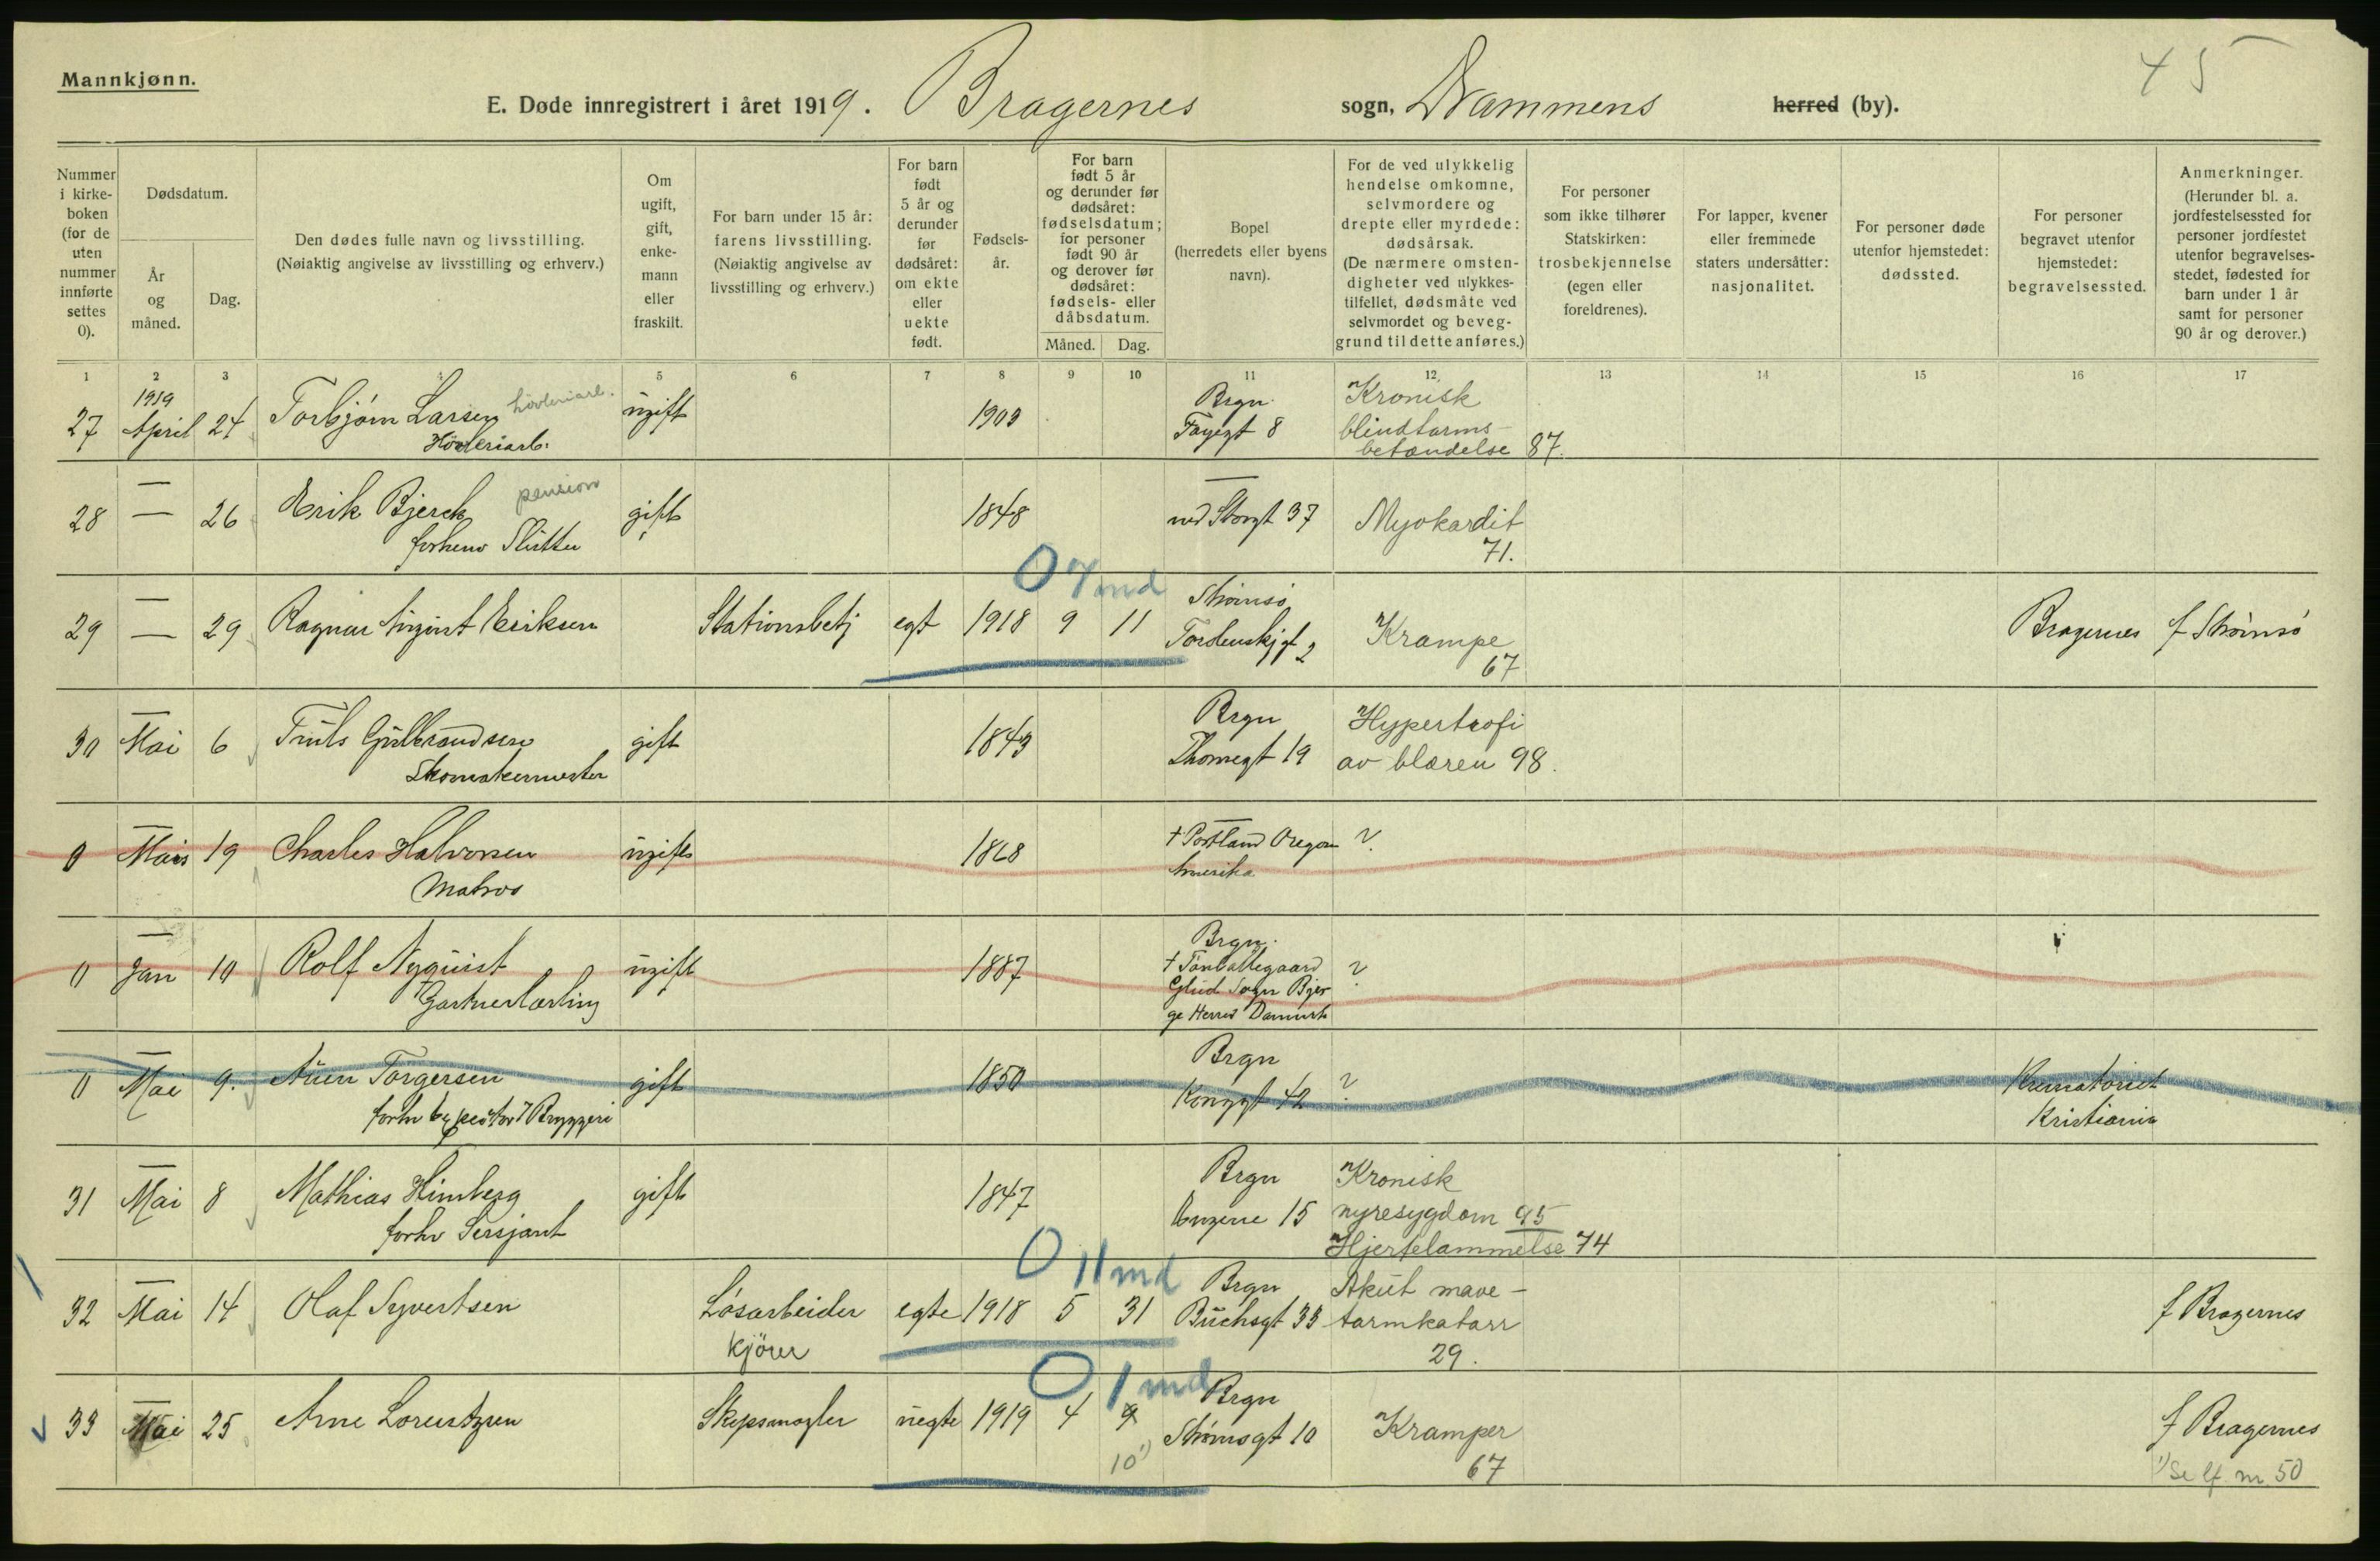 Mannkjønn.
45
E. Døde innregistrert i året 1919. Bragernes sogn, Drammens herred (by).
Nummer i kirke-boken (for de uten nummer innførte settes 0).
Dødsdatum.
År og måned.
Dag.
Den dødes fulle navn og livsstilling. (Nøiaktig angivelse av livsstilling og erhverv.)
Om ugift, gift, enke-mann eller fraskilt.
For barn under 15 år: farens livsstilling. (Nøiaktig angivelse av livsstilling og erhverv.)
For barn født 5 år og derunder før dødsåret: om ekte eller uekte født.
Fødsels-år.
For barn født 5 år og derunder før dødsåret: fødselsdatum; for personer født 90 år og derover før dødsåret: fødsels- eller dåbsdatum.
Måned. Dag.
Bopel (herredets eller byens navn).
For de ved ulykkelig hendelse omkomne, selvmordere og drepte eller myrdede: dødsårsak. (De nærmere omsten-digheter ved ulykkes-tilfellet, dødsmåte ved selvmordet og beveg-grund til dette anføres.)
For personer som ikke tilhører Statskirken: trosbekjennelse (egen eller foreldrenes).
For lapper, kvener eller fremmede staters undersåtter: nasjonalitet.
For personer døde utenfor hjemstedet: dødssted.
For personer begravet utenfor hjemstedet: begravelsessted.
Anmerkninger. (Herunder bl. a. jordfestelsessted for personer jordfestet utenfor begravelses-stedet, fødested for barn under 1 år samt for personer 90 år og derover.)
1 2 3 4 5 6 7 8 9 10 11 12 13 14 15 16 17
1919 Høvleriarb. Brgn. Kronisk
27 April 24 Torbjørn Larsen ugift 1903 Fayegt 8 blindtarms-
Høvleriarb. betændelse 87.
— pension —
28 — 26 Erik Bjerck gift 1848 ned Storgt 37 Myokardit
forhenv Slutter 71.
0 7 md
— Strømsø
29 — 29 Ragnar August Eriksen Stationsbetj egt 1918 9 11 Tordenskjgt 2 Krampe Bragernes f Strømsø
67
— Brgn Hypertrofi
30 Mai 6 Truls Gulbrandsen gift 1843 Thomegt 19 av blæren 98.
Skomakermester
— —
0 Mars 19 Charles Halvorsen ugift 1868 † Portland Oregon ?
Matros Amerika
— Brgn.
0 Jan 10 Rolf Nyquist ugift 1887 † ?
Gartnerlærling Glud Sogn Bjer
ge Herred Danmark
— Brgn
0 Mai 9. Auen Torgersen gift 1850 Konggt 42 ? Krematoriet
forhv Bryggeri Kristiania
— Brgn Kronisk
31 Mai 8 Mathias Himberg gift 1847 15 nyresygdom 95
forhv Sersjant Hjertelammelse 74
0 11 md
— Brgn Akut mave-
32 Mai 14 Olaf Syvertsen Løsarbeider egte 1918 5 31 Buchsgt 33 tarmkatarr f Bragernes
Kjører 29.
0 1 md
— Brgn
33 Mai 25 Arne Lorentzen Skipsmægler uegte 1919 4 9 Strømsgt 10 Kramper f Bragernes
10 1) 67 1) Se lf. nr 50